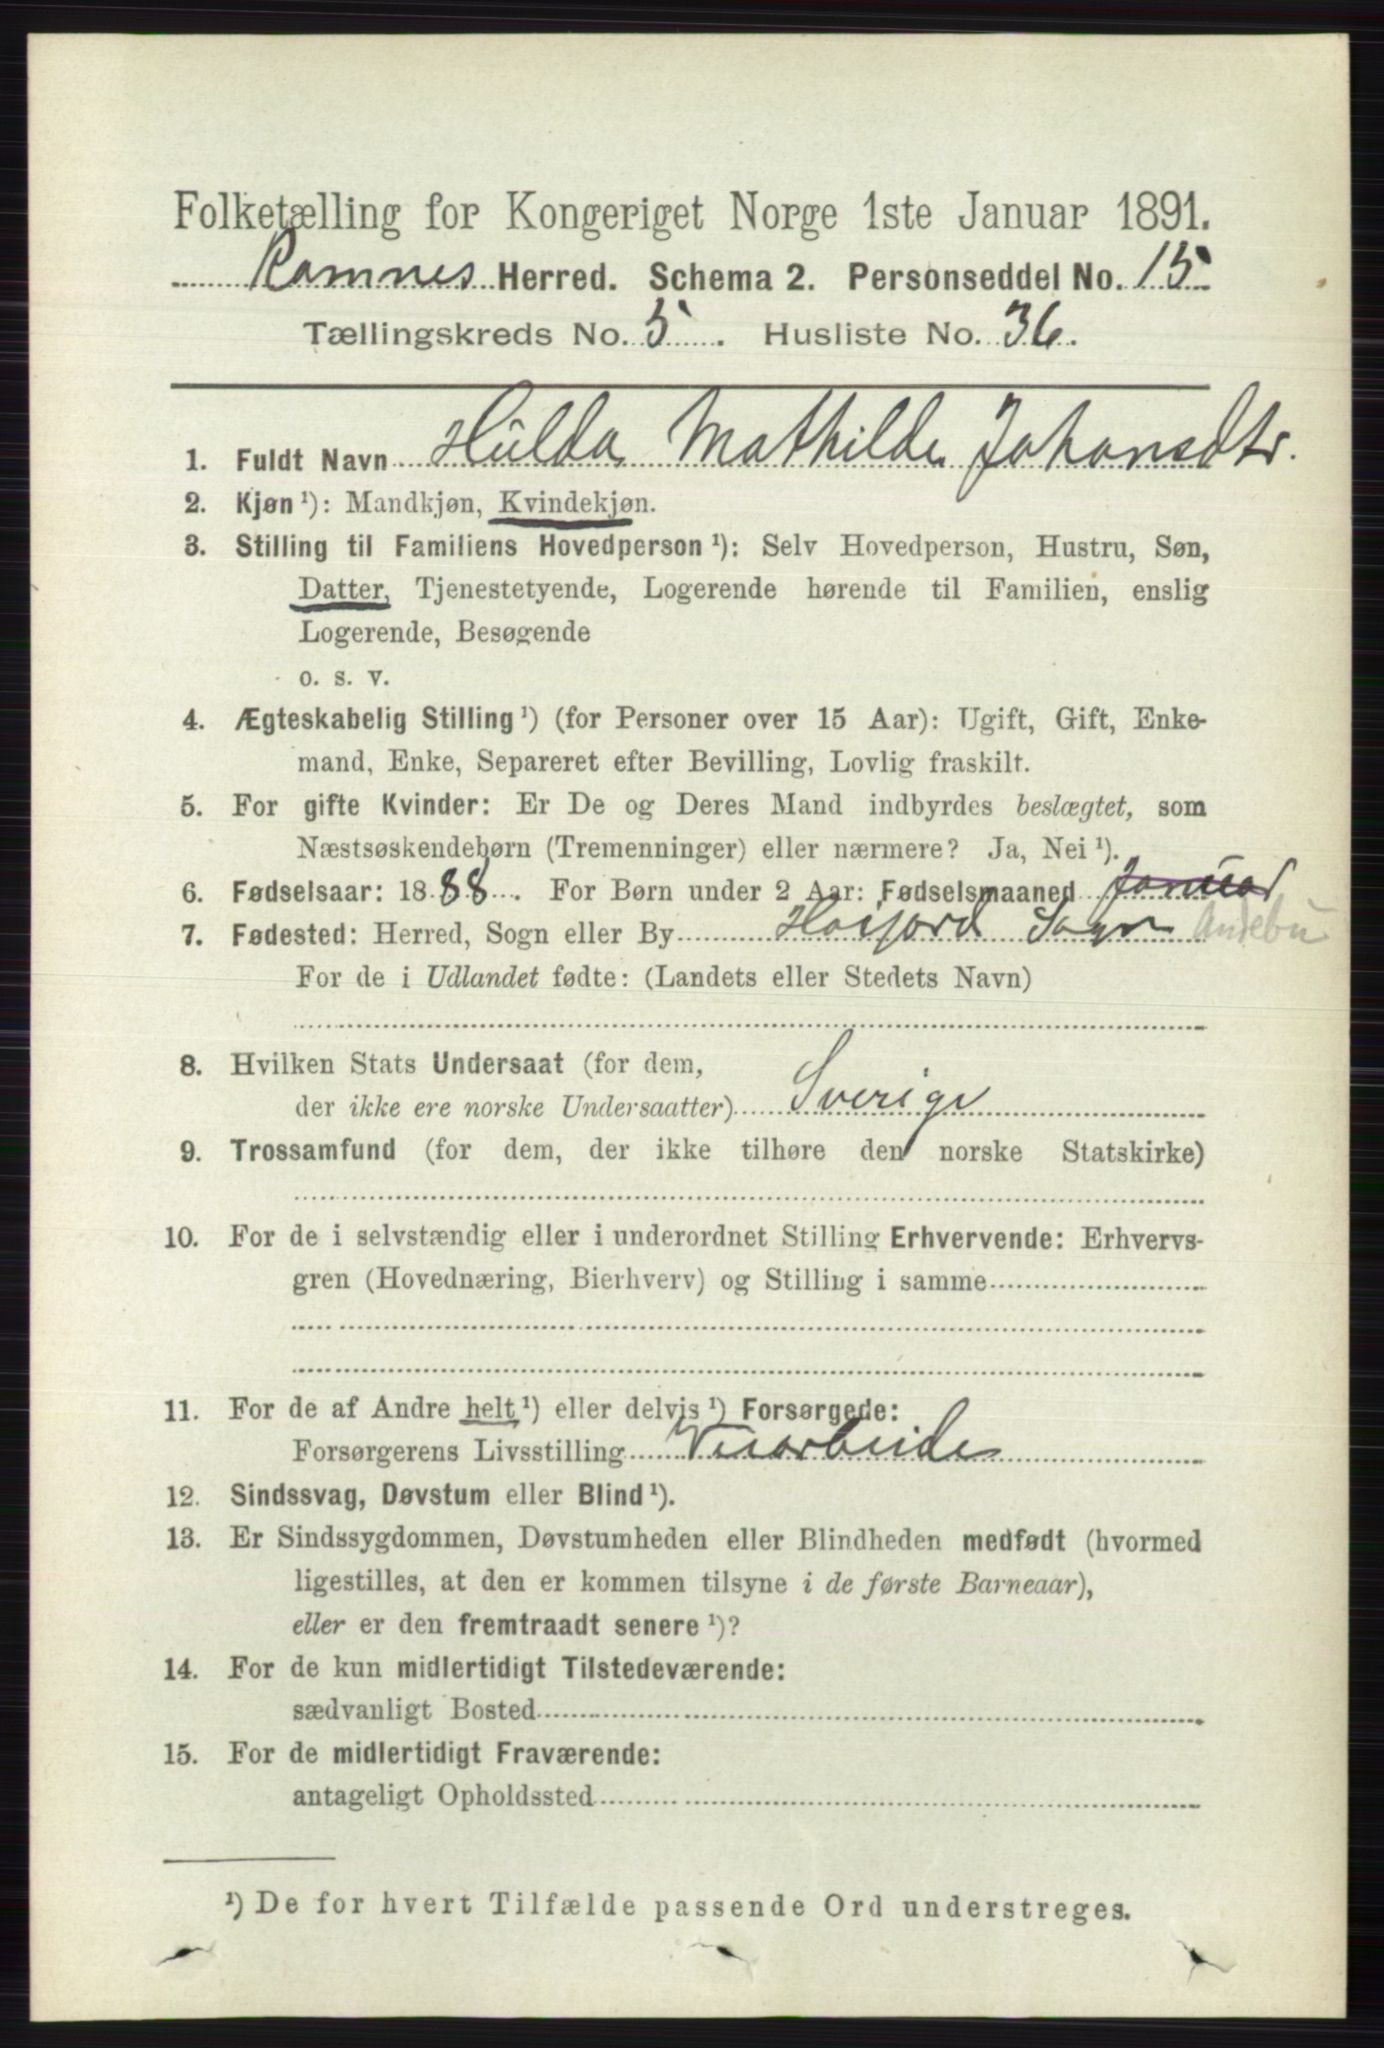 Folketælling for Kongeriget Norge 1ste Januar 1891.
Ramnes Herred. Schema 2. Personseddel No. 15
Tællingskreds No. 5. Husliste No. 36.
1. Fuldt Navn Hulda Mathilde Johansdtr.
2. Kjøn ¹): Mandkjøn, Kvindekjøn.
3. Stilling til Familiens Hovedperson ¹): Selv Hovedperson, Hustru, Søn,
Datter, Tjenestetyende, Logerende hørende til Familien, enslig
Logerende, Besøgende
o. s. v.
4. Ægteskabelig Stilling ¹) (for Personer over 15 Aar): Ugift, Gift, Enke-
mand, Enke, Separeret efter Bevilling, Lovlig fraskilt.
5. For gifte Kvinder: Er De og Deres Mand indbyrdes beslægtet, som
Næstsøskendebørn (Tremenninger) eller nærmere? Ja, Nei ¹).
6. Fødselsaar: 1888. For Børn under 2 Aar: Fødselsmaaned Januar
7. Fødested: Herred, Sogn eller By Høijord Sogn Andebu
For de i Udlandet fødte: (Landets eller Stedets Navn)
8. Hvilken Stats Undersaat (for dem,
der ikke ere norske Undersaatter) Sverige
9. Trossamfund (for dem, der ikke tilhøre den norske Statskirke)
10. For de i selvstændig eller i underordnet Stilling Erhvervende: Erhvervs-
gren (Hovednæring, Bierhverv) og Stilling i samme
11. For de af Andre helt ¹) eller delvis ¹) Forsørgede:
Forsørgerens Livsstilling Veiarbeide
12. Sindssvag, Døvstum eller Blind ¹).
13. Er Sindssygdommen, Døvstumheden eller Blindheden medfødt (hvormed
ligestilles, at den er kommen tilsyne i de første Barneaar),
eller er den fremtraadt senere ¹)?
14. For de kun midlertidigt Tilstedeværende:
sædvanligt Bosted
15. For de midlertidigt Fraværende:
antageligt Opholdssted
¹) De for hvert Tilfælde passende Ord understreges.